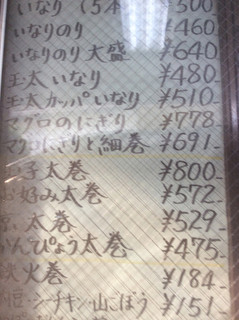 いなり (5本 ¥500
いなりのり ¥460
いなりのり大盛 ¥640
玉太いなり ¥480
玉太カッパいなり ¥510-
マグロのにぎり ¥778
マグロにぎりと細巻 ¥691-
子太巻 ¥800-
お好み太巻 ¥572-
太巻 ¥529
かんぴょう太巻 ¥475-
鉄火巻 ¥184-
シヅキン・山ごぼう ¥151-